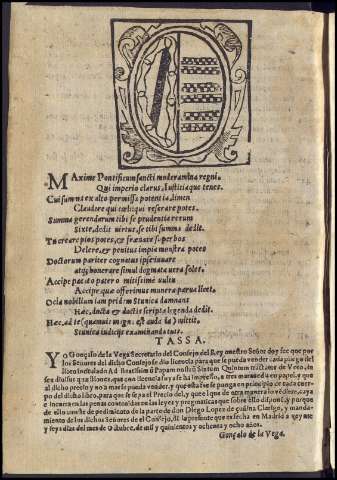 MAxime Pontificum sancti moderamina regni,
Qui imperio clarus, Iustitiaque tenes.
Cui summa ex alto permissa potentia, limen
Claudere qui cæli: qui reserare potes.
Summa gerendarum tibi se prudentia rerum
Sixte, dedit virtus, se tibi summa dedit.
Tu creare pios potes, & frænare superbos
Delere, & penitus impia monstra potes
Doctorum pariter cognatus
atq; honorare simul dogmata vera soles.
Accipe pacato pater o mitissime vultu
Accipe, quæ offerimus munera parua licet,
Ocia nobilium iam pridem Stunica damnans
Hæc, docta & doctis scripta legenda dedit.
Hæc, ad te
Stunica iudicijs examinanda tuis.
TASSA.
YO Gonçalo de la Vega Secretario del Consejo del Rey nuestro Señor doy fee que por
los Señores del dicho Consejo se dio licencia para que se pueda vender cada pliego del
libro intitulado Ad Beatissimũ Papam nostrũ Sixtum Quintum tractatus de Voto, en
ses diuisus quæstiones, que con licencia suya se ha impresso, a tres marauedis en papel, y que
al dicho precio y no a mas se pueda vender, y que esta fee se ponga en principio de cada cuerpo
del dicho libro, para que se sepa el precio del, y que el que de otra manera lo vẽdiere, cayga
e incurra en las penas contenidas en las leyes y pregmaticas que sobre ello disponẽ, y porque
de ello conste de pedimiento de la parte de don Diego Lopez de çuñiga Clerigo, y mandamiento
de los dichos Señores de el Consejo, di la presente que es fecha en Madrid a veynte
y seys dias del mes de Octubre, de mil y quinientos y ochenta y ocho años.
Gonçalo de la Vega.